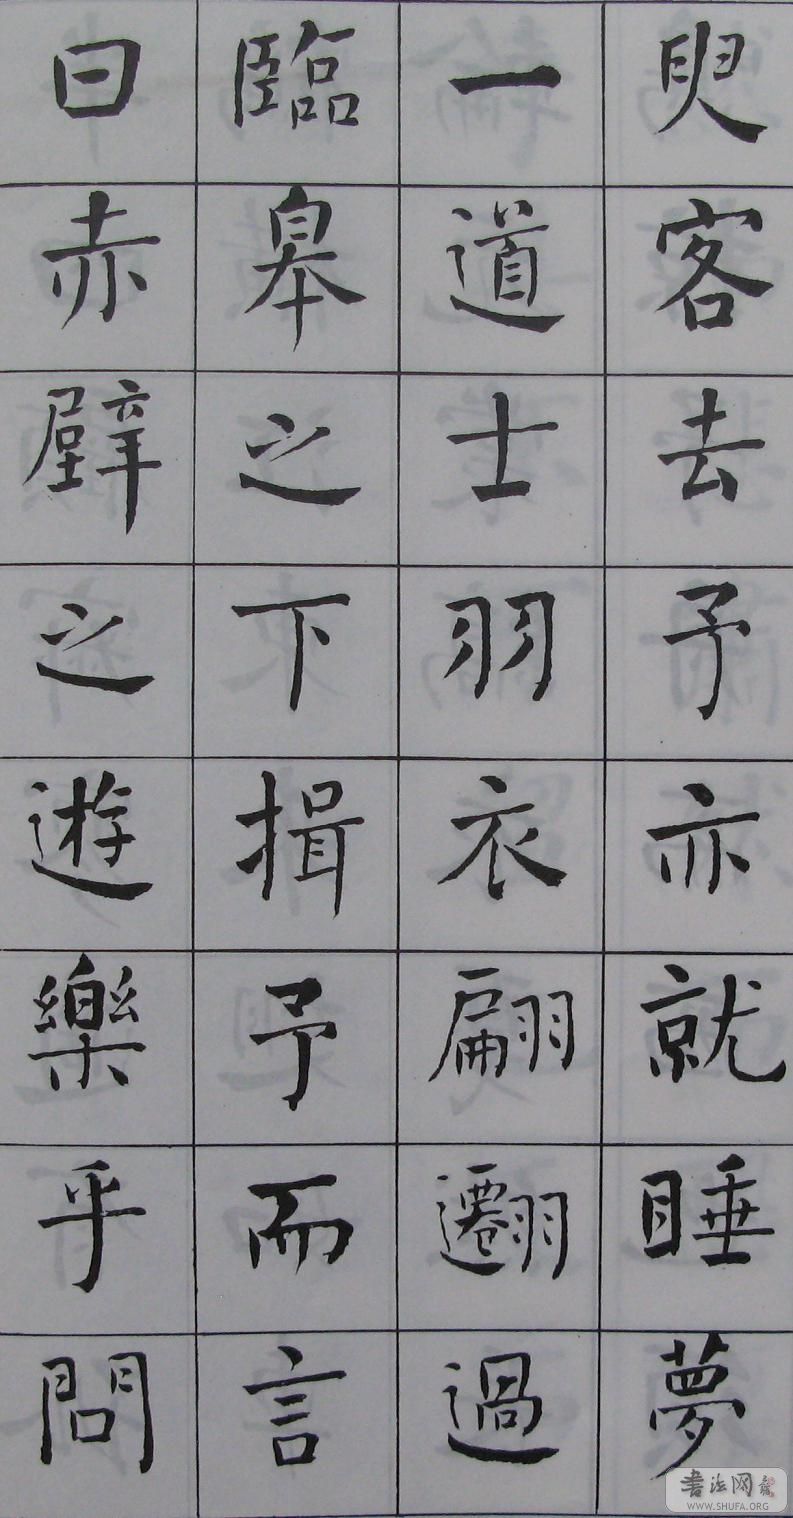 臾客去予亦就睡夢
一道士羽衣翩翾過
臨皋之下揖予而言
曰赤壁之遊樂乎問
書法网
WWW.SHUFA.ORG